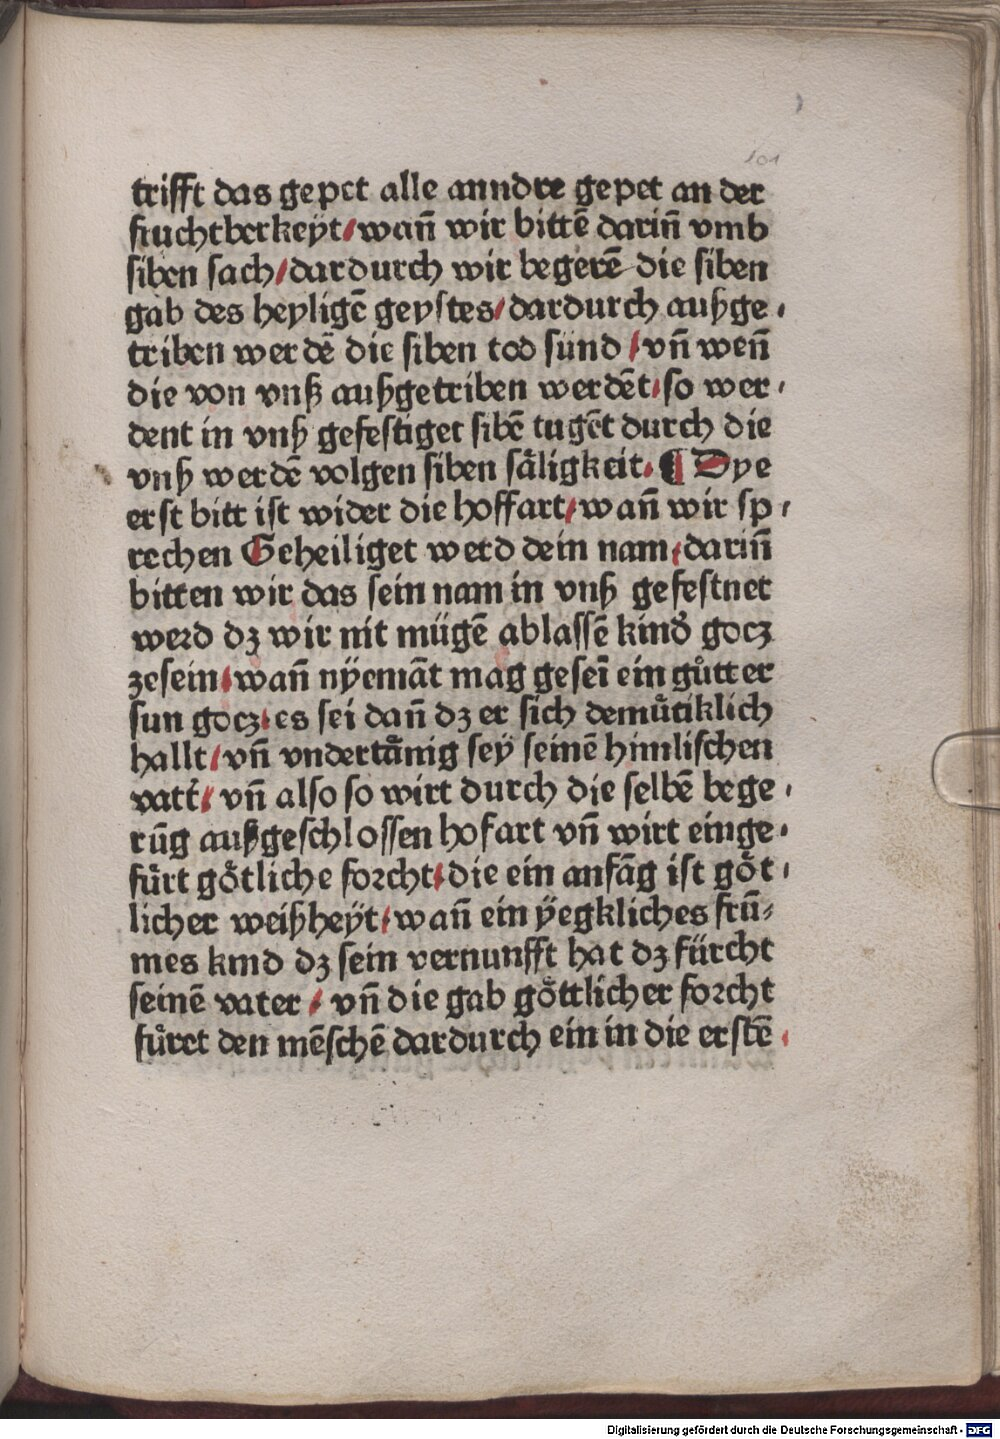 101
trifft das gepet alle anndre gepet an der
fruchtberkeyt/wañ wir bittē dariñ vmb
siben sach/dardurch wir begerē die siben
gab des heyligē geystes/dardurch außge-
triben werdē die siben tod sünd/vñ weñ
die von vnß außgetriben werdēt/so wer-
dent in vnß gefestiget sibē tugēt durch die
vnß werdē volgen siben sáligkeit. ¶ Dye
erst bitt ist wider die hoffart/wañ wir sp-
rechen Geheiliget werd dein nam/dariñ
bitten wir das sein nam in vnß gefestnet
werd dz wir nit mügē ablassē kind͛ gocz
zesein/wañ nÿemāt mag geseī ein gůtter
sun gocz/es sei dañ dz er sich demuͤtiklich
hallt/vñ vndertaͤnig seÿ seinē himlischen
vatt͛/vñ also so wirt durch die selbē bege-
rūg außgeschlossen hofart vñ wirt einge-
fuͤrt goͤtliche forcht/die ein anfāg ist goͤt-
licher weißheÿt/wañ ein ÿegkliches frū-
mes kind dz sein vernunfft hat dz fürcht
seinē vater/vñ die gab goͤttlicher forcht
fuͤret den mēschē dardurch ein in die erstē
Digitalisierung gefördert durch die Deutsche Forschungsgemeinschaft - DFG